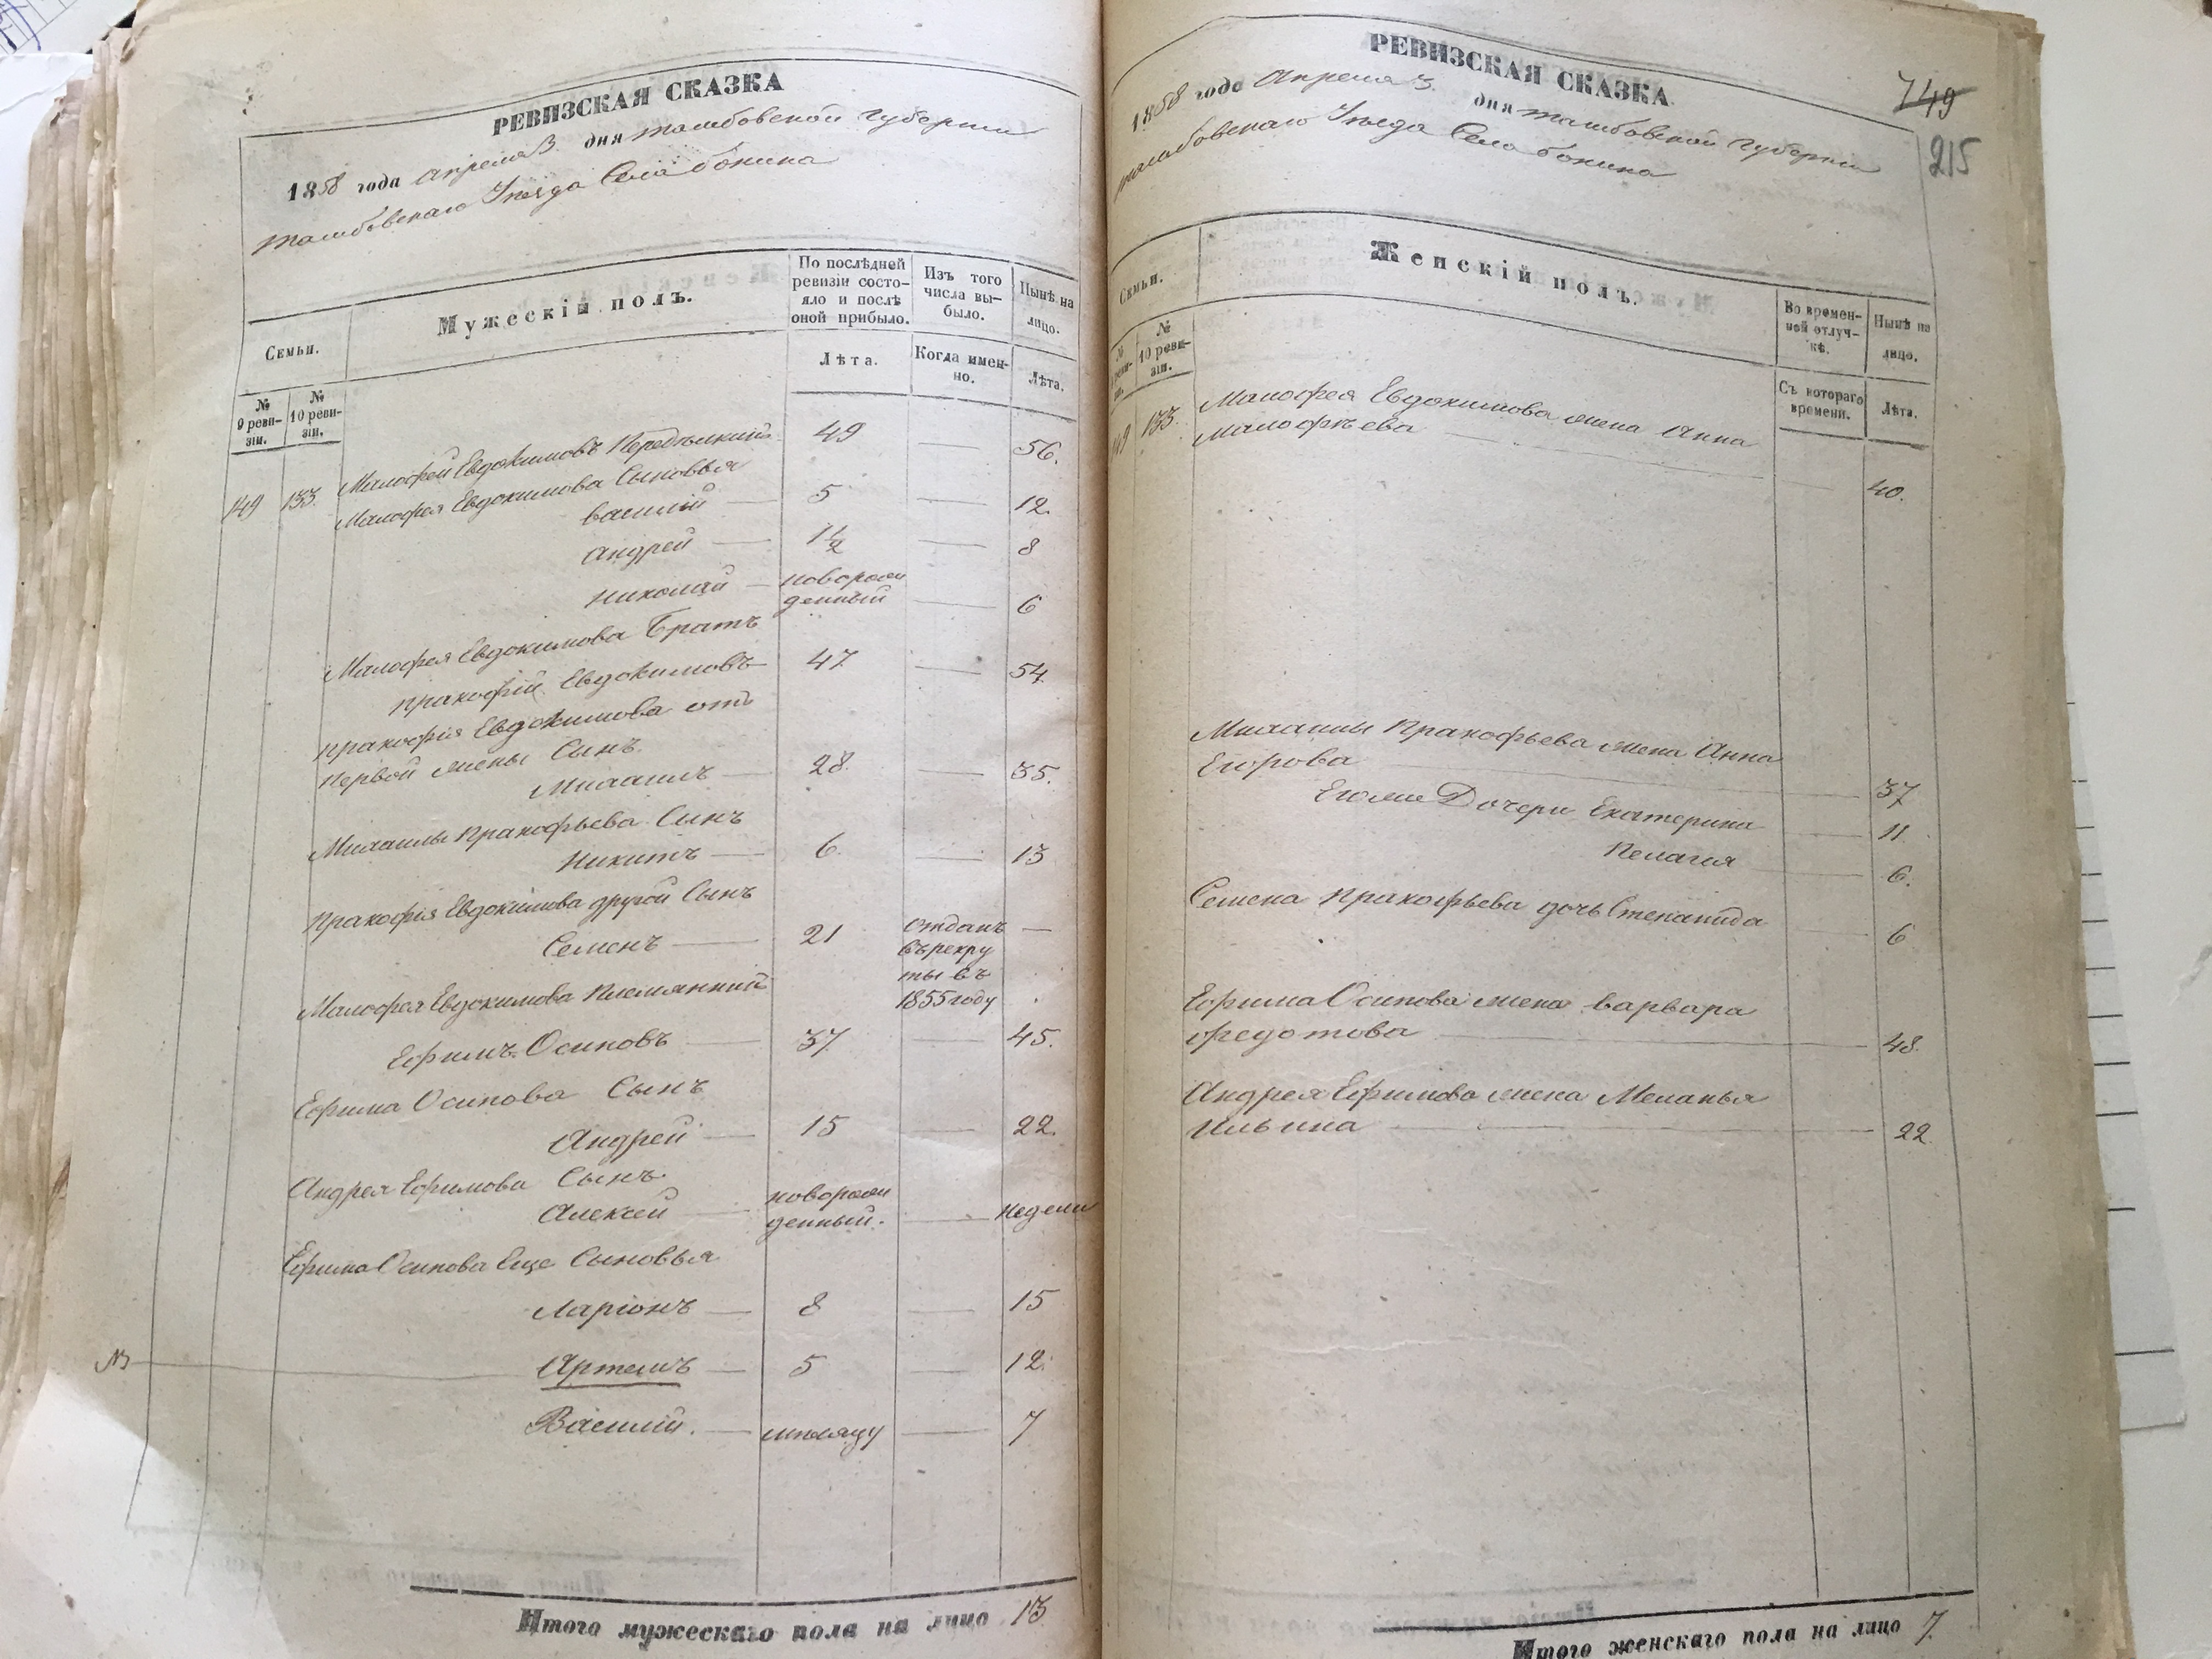 РЕВИЗСКАЯ СКАЗКА
1858 года апреля 3 дня тамбовской губернии
тамбовскаго Уезда Села бокина
Семьи.
Мужескій полъ.
По послѣдней ревизіи состо-
яло и послѣ
оной прибыло.
Изъ того
числа вы-
было.
Нынѣ на
лицо.
№
9 реви-
зіи.
№
10 реви-
зіи.
Лѣта.
Когда имен-
но.
Лѣта.
149 133. Малофей Евдокимовъ 49 56.
Малофея Евдокимова Сыновья
василій 5 12.
андрей 1½ 8
николай новорож
денный 6
Малофея Евдокимова Братъ
пракофій Евдокимовъ 47 54.
пракофія Евдокимова отъ
первой жены Сынъ
Михаилъ 28. 35.
Михаилы пракофьева Сынъ
Никитъ 6. 13
пракофія Евдокимова другой Сынъ
Семенъ 21 отданъ
въ рекру
ты въ
1855 году
Малофея Евдокимова племянникъ
Ефимъ Осиповъ 37. 45.
Ефима Осипова Сынъ
Андрей 15 22.
Андрея Ефимова Сынъ
Алексей новорож
денный. недели
Ефима Осипова Еще Сыновья
Ларіонъ 8 15
Артемъ 5 12.
Василій. месяцу 7
Итого мужескаго пола на лицо 13
РЕВИЗСКАЯ СКАЗКА
749
215
1858 года апреля 3. дня тамбовской губернии
тамбовскаго Уезда Села бокина
Семьи.
Женскій полъ.
Во времен-
ной отлуч-
кѣ.
Нынѣ на
лицо.
№
9 реви-
зіи.
№
10 реви-
зіи.
Съ котораго
времени.
Лѣта.
149 133. Малофея Евдокимова жена Анна
Малофѣева 40.
Михаилы пракофьева жена Анна
Егорова 37
Его же Дочери Екатерина 11
Пелагия 6.
Семена пракофьева дочь Степанида 6
Ефима Осипова жена варвара
федотова 48
Андрея Ефимова жена Меланья
Ильина 22
Итого женскаго пола на лицо 7.